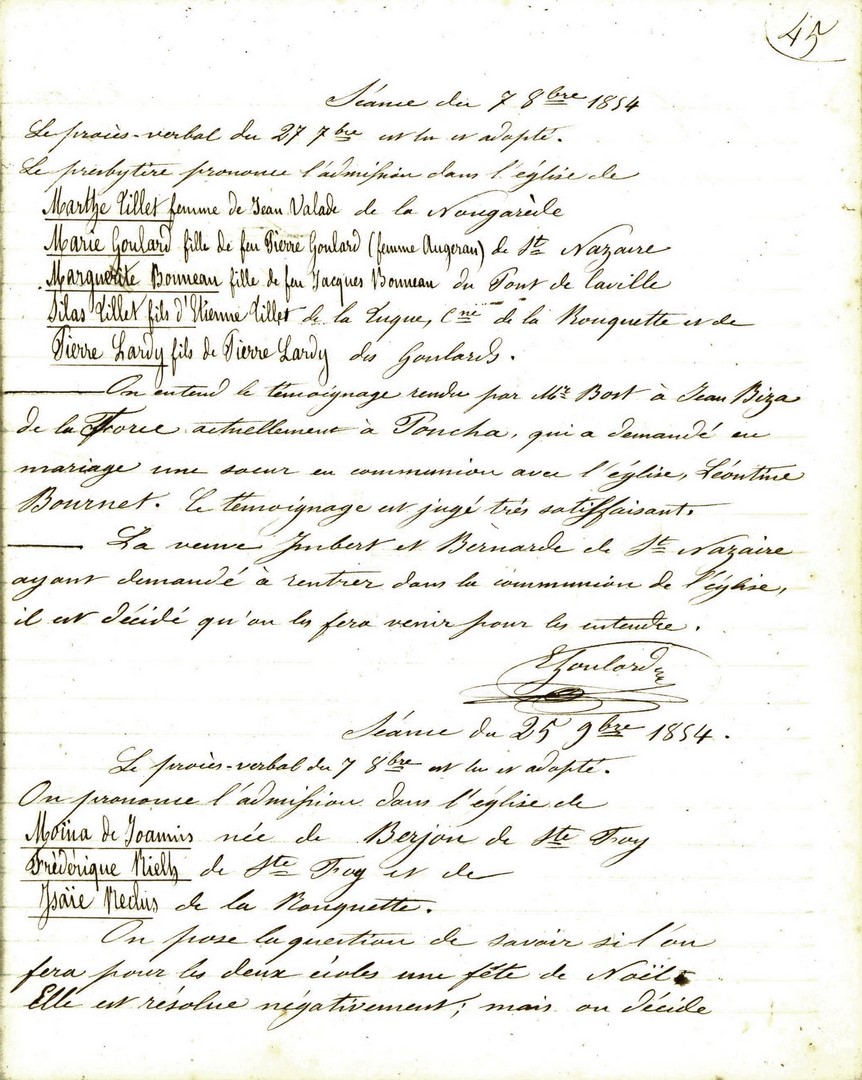 45
Séance du 7 8bre 1854
Le procès-verbal du 27 7bre est lu et adopté.
Le presbytère prononce l'admission dans l'église de
Marthe Tillet femme de Jean Valade de la Nougarède
Marie Goulard fille de feu Pierre Goulard (femme Augeran) de St Nazaire
Marguerite Bonneau fille de feu Jacques Bonneau du Pont de laville
Silas Tillet fils d'Etienne Tillet de la Lugue, Cne de la Rouquette et de
Pierre Lardy fils de Pierre Lardy des Goulards.
On entend le témoignage rendu par Mr Bost à Jean Biza
de la Force actuellement à Poncha, qui a demandé en
mariage une soeur en communion avec l'église, Léontine
Bournet. Ce témoignage est jugé très satisfaisant.
La veuve Imbert et Bernarde de St Nazaire
ayant demandé à rentrer dans la communion de l'église,
il est décidé qu'on les fera venir pour les entendre.
Goulard
Séance du 25 9bre 1854.
Le procès-verbal du 7 8bre est lu et adopté.
On prononce l'admission dans l'église de
Moïna de Joannis née de Berjon de Ste Foy
Frédérique Rieth de Ste Foy et de
Isaïe Reclus de la Rouquette.
On pose la question de savoir si l'on
fera pour les deux écoles une fête de Noël.
Elle est résolue négativement; mais on décide